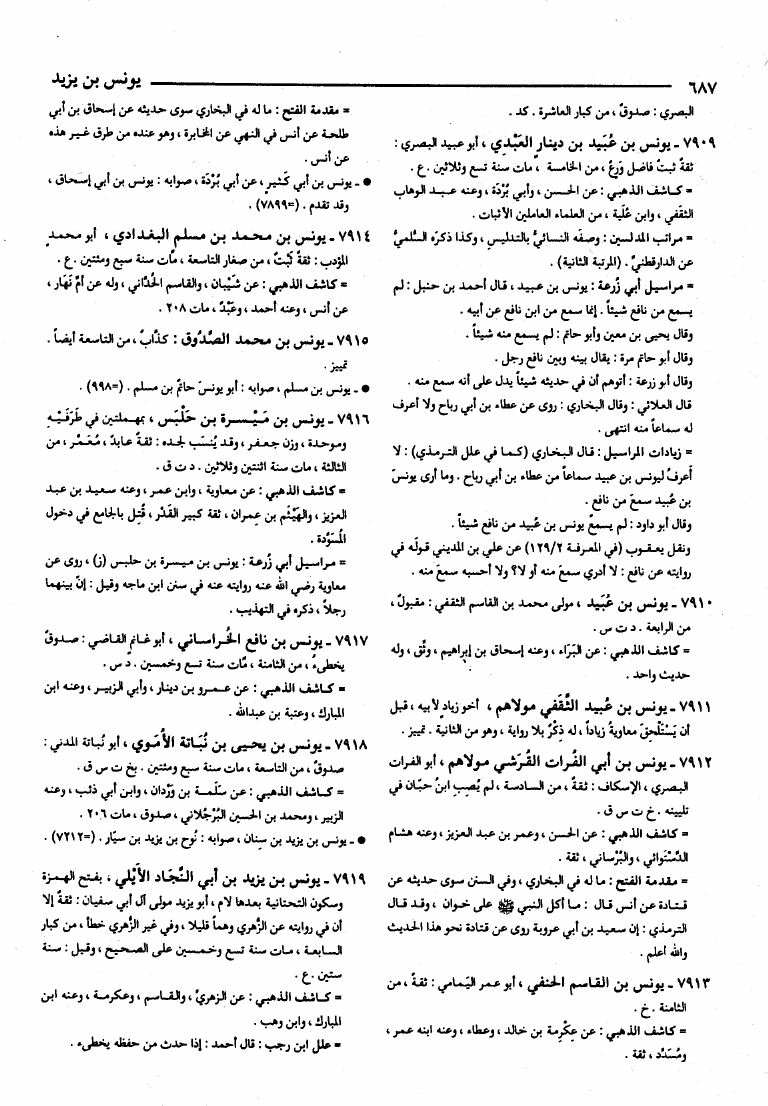 ٦٨٧ يونس بن يزيد
البصري : صدوقٌ ، من كبار العاشرة . كد .
٧٩٠٩ ـ يونس بن عُبَيد بن دينار العَبْدي ، أبو عبيد البصري :
ثقةٌ ثبتٌ فاضل وَرِعٌ ، من الخامسة ، مات سنة تسع وثلاثين . ع .
= كاشف الذهبي : عن الحسن ، وأبي بُرْدَة ، وعنه عبد الوهاب
الثقفي ، وابن عُلَية ، من العلماء العاملين الأثبات .
= مراتب المدلسين : وصفَه النسائيُّ بالتدليس ، وكذا ذكرَه السُّلميُّ
عن الدارقطنيِّ . (المرتبة الثانية) .
= مراسيل أبي زُرعة : يونس بن عبيد ، قال أحمد بن حنبل : لم
يسمع من نافع شيئاً . إنما سمع من ابن نافع عن أبيه .
وقال يحيى بن معين وأبو حاتم : لم يسمع منه شيئاً .
وقال أبو حاتم مرة : يقال بينه وبين نافع رجل .
وقال أبو زرعة : أتوهم أن في حديثه شيئاً يدل على أنه سمع منه .
قال العلائي : وقال البخاري : روى عن عطاء بن أبي رباح ولا أعرف
له سماعاً منه انتهى .
= زيادات المراسيل : قال البخاري (كما في علل الترمذي) : لا
أعرفُ ليونس بن عبيد سماعاً من عطاء بن أبي رباح . وما أرى يونسَ
بن عُبيد سمعَ من نافع .
وقال أبو داود : لم يسمعْ يونس بن عُبيد من نافع شيئاً .
ونقل يعقوب (في المعرفة ١٢٩/٢) عن علي بن المديني قولَه في
روايته عن نافع : لا أدري سمعَ منه أو لا؟ ولا أحسبه سمعَ منه .
٧٩١٠ ـ يونس بن عُبَيد ، مولى محمد بن القاسم الثقفي : مقبولٌ ،
من الرابعة . د ت س .
= كاشف الذهبي : عن البَرَاء ، وعنه إسحاق بن إبراهيم ، وثِّق ، وله
حديث واحد .
٧٩١١ ـ يونس بن عُبيد الثَّقَفي مولاهم ، أخو زيادٍ لأبيه ، قبل
أن يَسْتَلْحِقَ معاويةُ زياداً ، له ذِكْرٌ بلا رواية ، وهو من الثانية . تمييز .
٧٩١٢ ـ يونس بن أبي الفُرات القُرَشي مولاهم ، أبو الفرات
البصري ، الإسكاف : ثقةٌ ، من السادسة ، لم يُصِبِ ابنُ حبَّان في
تليينه . خ ت س ق .
= كاشف الذهبي : عن الحسن ، وعمر بن عبد العزيز ، وعنه هشام
الدَّسْتَوائي ، والبُرْساني ، ثقة .
= مقدمة الفتح : ما له في البخاري ، وفي السنن سوى حديثه عن
قتادة عن أنس قال : ما أكل النبي ﷺ على خوان ، وقد قال
الترمذي : إن سعيد بن أبي عروبة روى عن قتادة نحو هذا الحديث
والله أعلم .
٧٩١٣ ـ يونس بن القاسم الحنفي ، أبو عمر اليَمامي : ثقةٌ ، من
الثامنة . خ .
= كاشف الذهبي : عن عِكْرِمة بن خالد ، وعطاء ، وعنه ابنه عمر ،
ومُسَدَّد ، ثقة .
= مقدمة الفتح : ما له في البخاري سوى حديثه عن إسحاق بن أبي
طلحة عن أنس في النهي عن المخابرة ، وهو عنده من طرق غير هذه
عن أنس .
● ـ يونس بن أبي كثيرٍ ، عن أبي بُرْدَة ، صوابه : يونس بن أبي إسحاق ،
وقد تقدم . (=٧٨٩٩) .
٧٩١٤ ـ يونس بن محمد بن مسلم البغدادي ، أبو محمد
المؤدب : ثقةٌ ثَبْتٌ ، من صغار التاسعة ، مات سنة سبع ومئتين . ع .
= كاشف الذهبي : عن شَيْبان ، والقاسم الحُدَّاني ، وله عن أمِّ نَهار ،
عن أنس ، وعنه أحمد ، وعَبْدٌ ، مات ٢٠٨ .
٧٩١٥ ـ يونس بن محمد الصَّدُوق : كذَّابٌ ، من التاسعة أيضاً .
تمييز .
● ـ يونس بن مسلم ، صوابه : أبو يونسَ حاتمُ بن مسلم . (=٩٩٨) .
٧٩١٦ ـ يونس بن مَيْسرة بن حَلْبَس ، بمهملتين في طَرَفَيْه
وموحدة ، وزن جعفر ، وقد يُنسَب لجده : ثقةٌ عابدٌ ، مُعَمَّر ، من
الثالثة ، مات سنة اثنتين وثلاثين . د ت ق .
= كاشف الذهبي : عن معاوية ، وابن عمر ، وعنه سعيد بن عبد
العزيز ، والهَيْثَم بن عِمران ، ثقة كبير القَدْر ، قُتِل بالجامع في دخول
المُسَوِّدة .
= مراسيل أبي زُرعة : يونس بن ميسرة بن حلبس (ز) ، روى عن
معاوية رضي الله عنه روايته عنه في سنن ابن ماجه وقيل : إنّ بينهما
رجلاً ، ذكره في التهذيب .
٧٩١٧ ـ يونس بن نافع الخُراساني ، أبو غانم القاضي : صدوقٌ
يخطىءُ ، من الثامنة ، مات سنة تسع وخمسين . د س .
= كاشف الذهبي : عن عمرو بن دينار ، وأبي الزبير ، وعنه ابن
المبارك ، وعتبة بن عبدالله .
٧٩١٨ ـ يونس بن يحيى بن نُبَاتة الأموي ، أبو نُباتة المدني :
صدوقٌ ، من التاسعة ، مات سنة سبع ومئتين . بخ ت س ق .
= كاشف الذهبي : عن سلَمة بن وَرْدان ، وابن أبي ذئب ، وعنه
الزبير ، ومحمد بن الحسين البُرْجُلاني ، صدوق ، مات ٢٠٦ .
● ـ يونس بن يزيد بن سنان ، صوابه : نُوح بن يزيد بن سيّار . (=٧٢١٢) .
٧٩١٩ ـ يونس بن يزيد بن أبي النِّجَاد الأَيْلي ، بفتح الهمزة
وسكون التحتانية بعدها لام ، أبو يزيد مولى آل أبي سفيان : ثقةٌ إلا
أن في روايته عن الزُّهري وهماً قليلا ، وفي غير الزُّهري خطأ ، من كبار
السابعة ، مات سنة تسع وخمسين على الصحيح ، وقيل : سنة
ستين . ع .
= كاشف الذهبي : عن الزهريِّ ، والقاسم ، وعكرمة ، وعنه ابن
المبارك ، وابن وهب .
= علل ابن رجب : قال أحمد : إذا حدث من حفظه يخطىء .